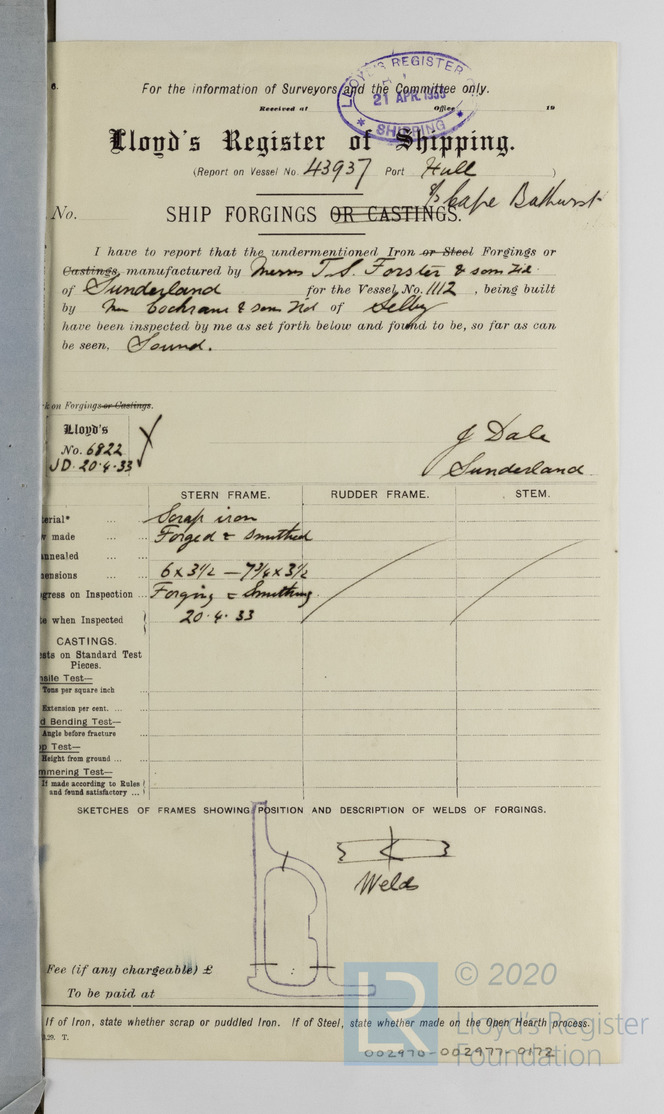 6.
For the information of Surveyors and the Committee only.
Received at Office 19
LLOYD'S REGISTER OF SHIPPING
21 APR. 1933
Lloyd's Register of Shipping.
(Report on Vessel No. 43937 Port Hull )
S/S Cape Bathurst
No. SHIP FORGINGS OR CASTINGS.
I have to report that the undermentioned Iron or Steel Forgings or
Castings, manufactured by Messrs T. S. Forster & Sons Ltd.
of Sunderland for the Vessel, No. 1112 , being built
by Cochrane & Sons Ltd of Selby
have been inspected by me as set forth below and found to be, so far as can
be seen, Sound.
k on Forgings or Castings.
Lloyd's
No. 6822
JD. 20.4.33
J Dale
Sunderland
STERN FRAME. RUDDER FRAME. STEM.
terial* ... ... Scrap iron
w made ... ... Forged & Smithed
nnealed ... ...
mensions ... ... 6 x 3 1/2 — 7 3/4 x 3 1/2
gress on Inspection ... Forging & Smithing
te when Inspected 20.4.33
CASTINGS.
sts on Standard Test
Pieces.
nsile Test—
Tons per square inch ...
Extension per cent. ... ...
d Bending Test—
Angle before fracture ...
op Test—
Height from ground ... ...
mmering Test—
If made according to Rules
and found satisfactory ...
SKETCHES OF FRAMES SHOWING POSITION AND DESCRIPTION OF WELDS OF FORGINGS.
Welds
Fee (if any chargeable) £
To be paid at
If of Iron, state whether scrap or puddled Iron. If of Steel, state whether made on the Open Hearth process.
3.29. T.
© 2020
LR
Lloyd's Register
Foundation
002970-002977-0172